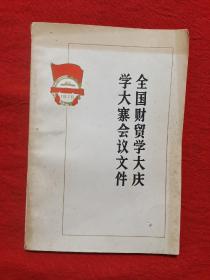 全国财贸学大庆
学大寨会议文件